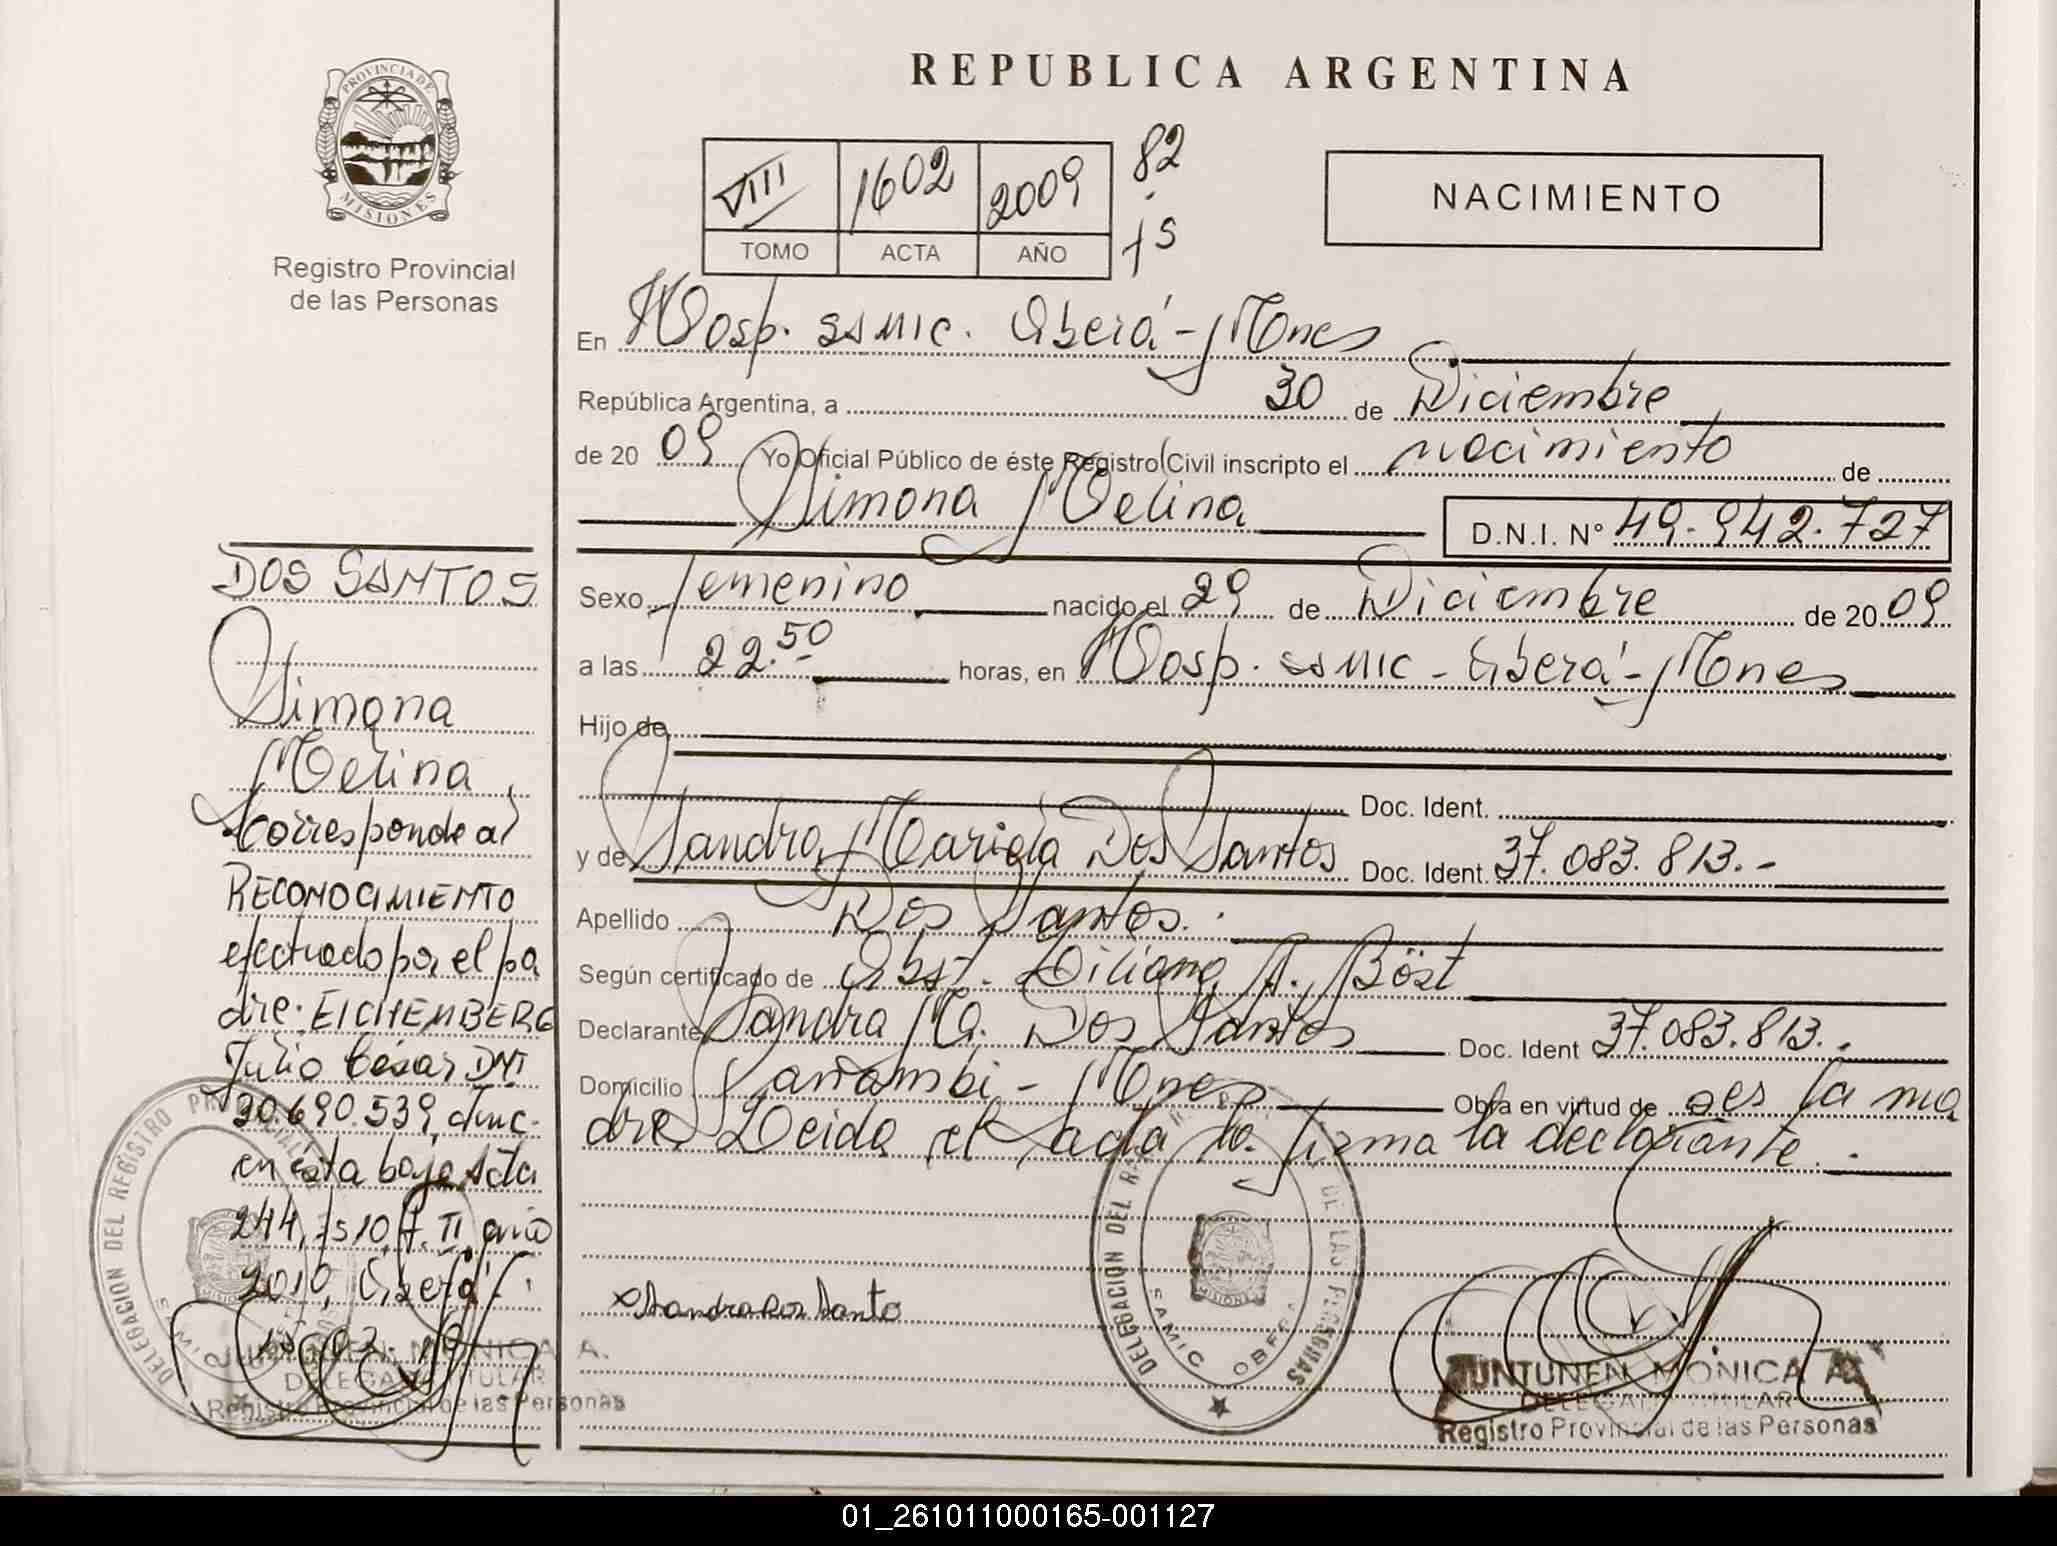 REPUBLICA ARGENTINA
PROVINCIA DE
MISIONES
Registro Provincial
de las Personas
VIII 1602 2009 82
TOMO ACTA AÑO fs
NACIMIENTO
En Hosp. SAMIC. Oberá - Mnes
República Argentina, a 30 de Diciembre
de 20 09 Yo Oficial Público de éste Registro Civil inscripto el nacimiento de
Simona Melina D.N.I. Nº 49.942.727
Sexo femenino nacido el 29 de Diciembre de 20 09
a las 22.50 horas, en Hosp. SAMIC - Oberá - Mnes
Hijo de
Doc. Ident.
y de Sandra Mariela Dos Santos Doc. Ident. 37.083.813.-
Apellido Dos Santos.
Según certificado de Obst. Liliana A. Böst
Declarante Sandra M. Dos Santos Doc. Ident 37.083.813.-
Domicilio Panambí - Mnes Obra en virtud de ser la ma
dre. Leida el acta la firma la declarante.-
x Sandra Dos Santo
DELEGACION DEL DE LAS PERSONAS
SAMIC OBERA
MISIONES
JUNTUNEN MONICA A.
DELEGADA TITULAR
Registro Provincial de las Personas
DOS SANTOS
Simona
Melina
Corresponde al
RECONOCIMIENTO
efectuado por el pa
dre: EICHEMBERG
Julio César DNI
30.690.539, func.
en ésta bajo Acta
244, fs 10, t. II, año
2010, Oberá
DELEGACION DEL REGISTRO PROVINCIAL
JUNTUNEN MONICA A.
DELEGADA TITULAR
Registro Provincial de las Personas
01_261011000165-001127